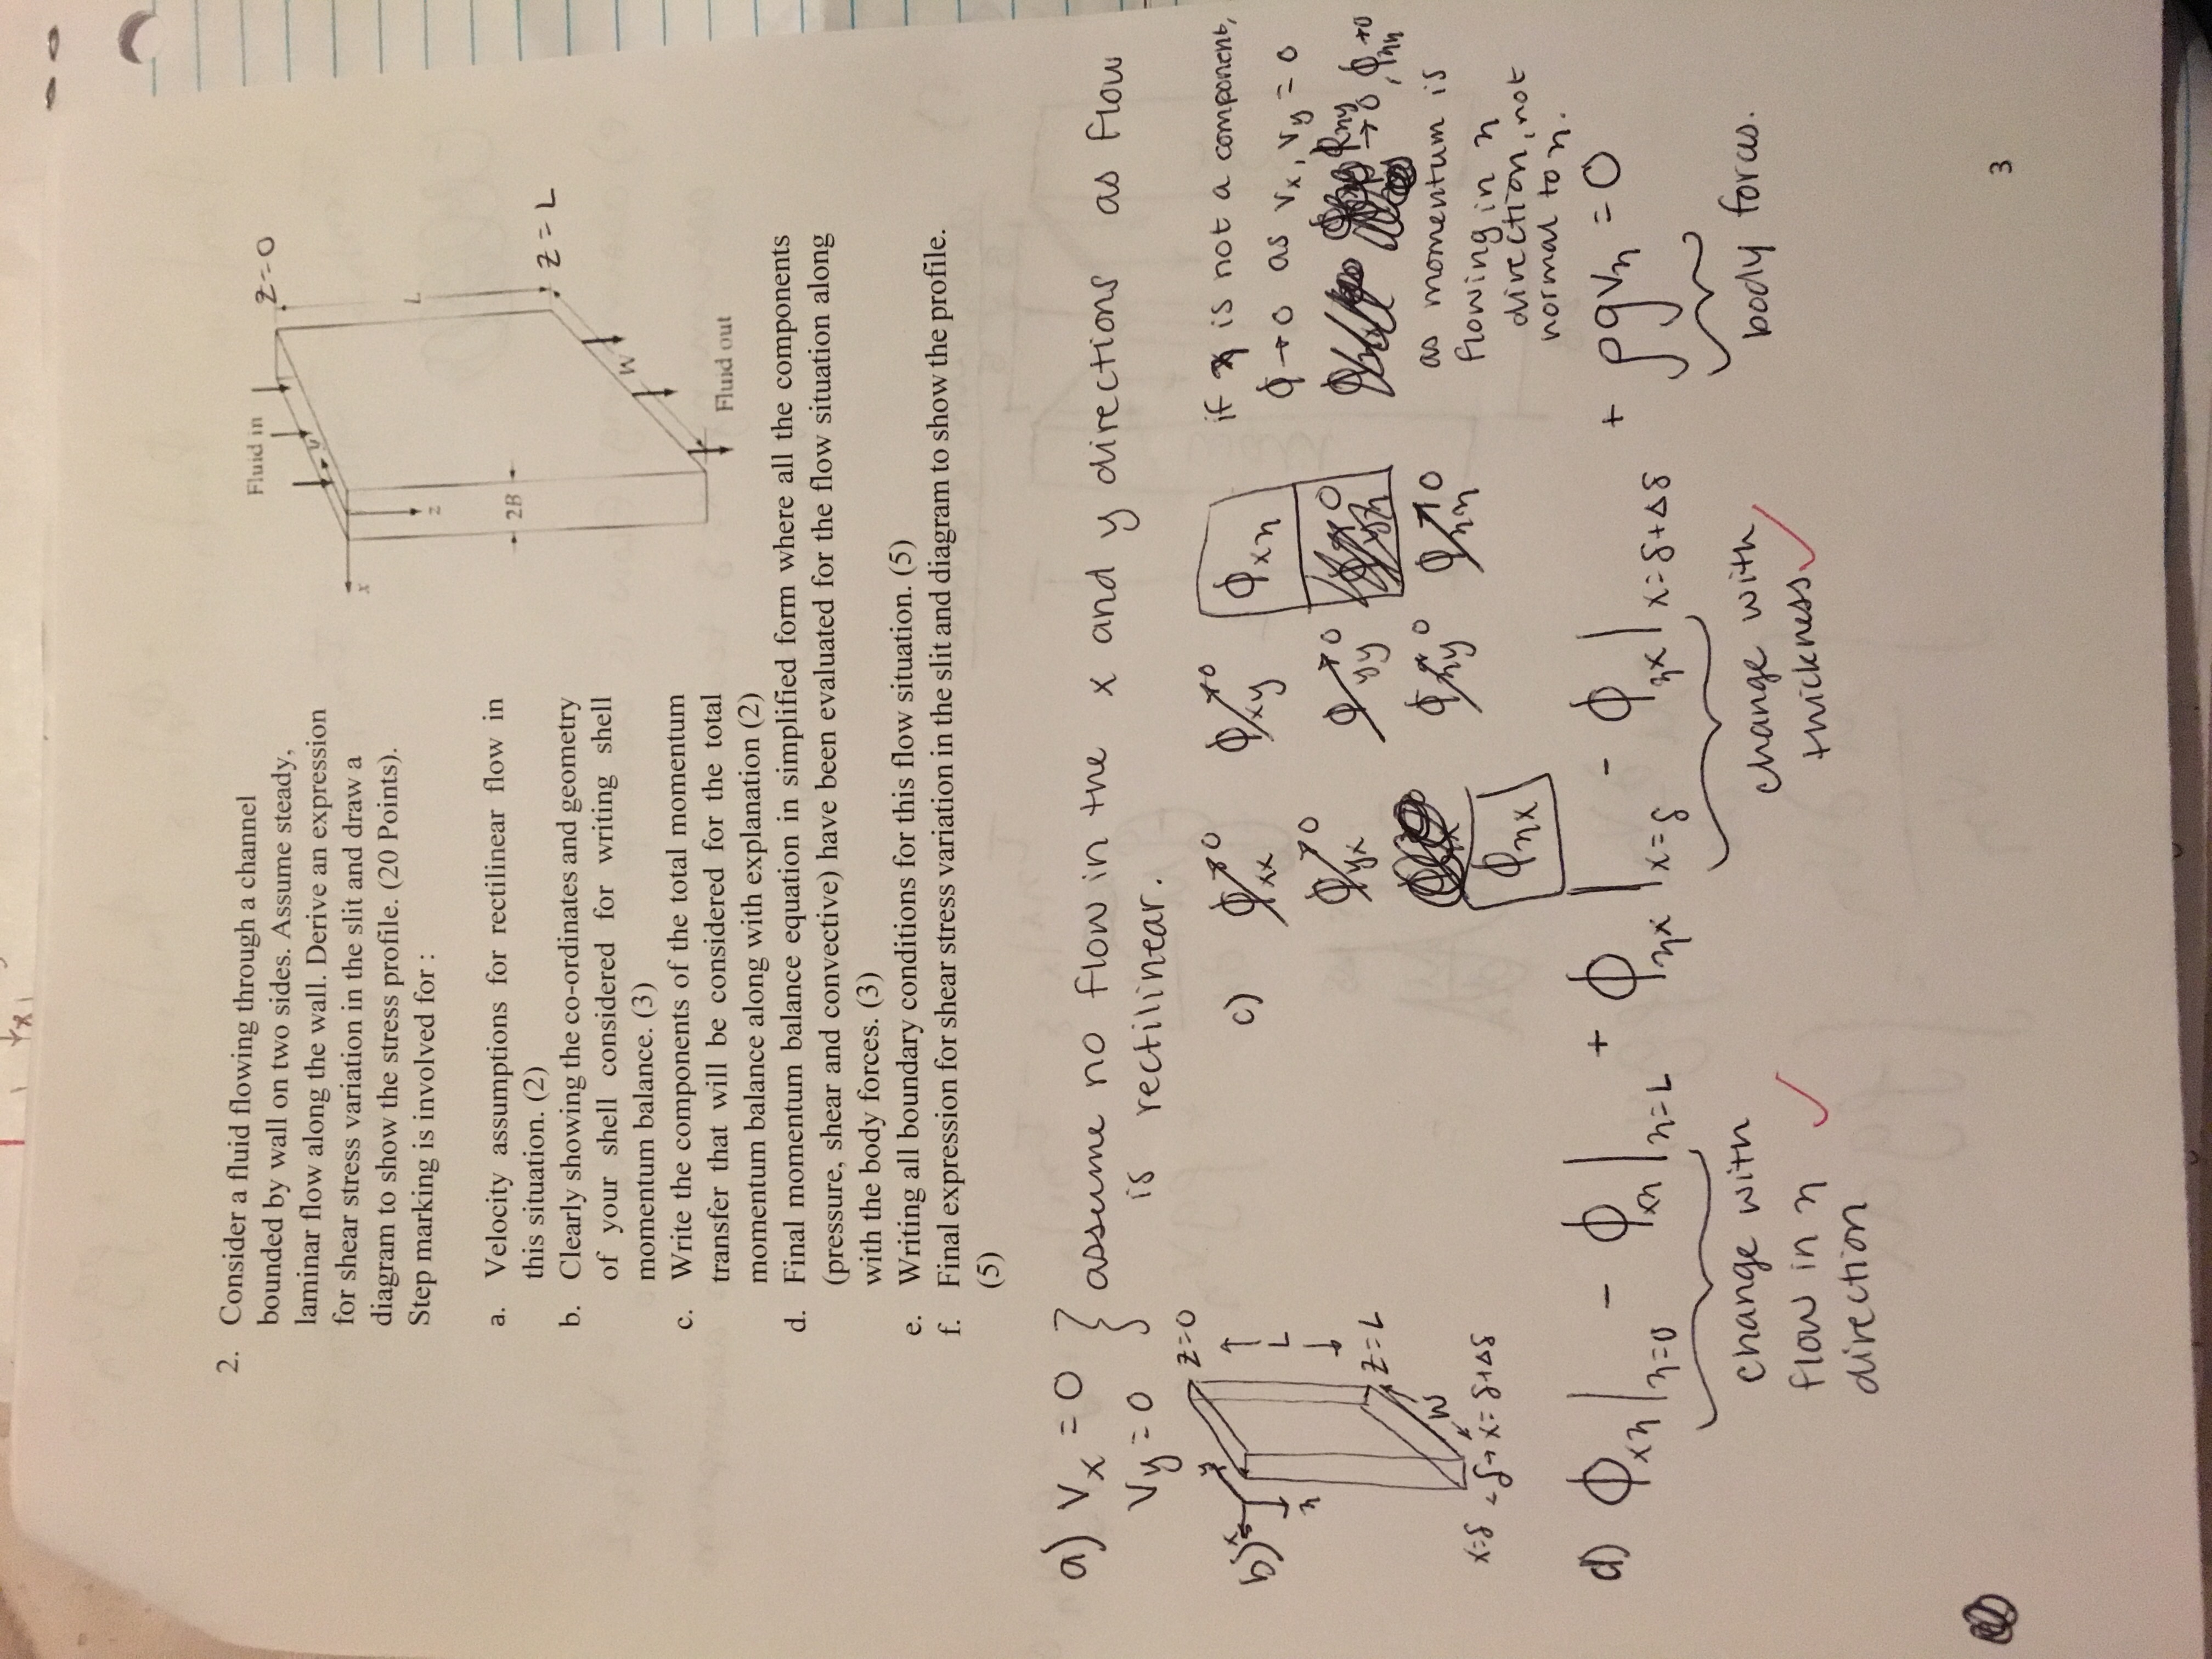 2. Consider a fluid flowing through a channel
bounded by wall on two sides. Assume steady,
laminar flow along the wall. Derive an expression
for shear stress variation in the slit and draw a
diagram to show the stress profile. (20 Points).
Step marking is involved for :
Fluid in
z=0
y
x
z
L
2B
z=L
W
Fluid out
a. Velocity assumptions for rectilinear flow in
this situation. (2)
b. Clearly showing the co-ordinates and geometry
of your shell considered for writing shell
momentum balance. (3)
c. Write the components of the total momentum
transfer that will be considered for the total
momentum balance along with explanation (2)
d. Final momentum balance equation in simplified form where all the components
(pressure, shear and convective) have been evaluated for the flow situation along
with the body forces. (3)
e. Writing all boundary conditions for this flow situation. (5)
f. Final expression for shear stress variation in the slit and diagram to show the profile.
(5)
a) Vx = 0
Vy = 0
} assume no flow in the x and y directions as flow
is rectilinear.
b) x y z
z=0
↑
L
↓
z=L
W
x=δ ←δ→ x=δ+Δδ
c) ϕxx→0 ϕxy→0 ϕxz
ϕyx→0 ϕyy→0
ϕzy→0 ϕzz→0
ϕzx
if z is not a component,
ϕ→0 as vx, vy = 0
ϕzy→0, ϕzz→0
as momentum is
flowing in z
direction, not
normal to z.
d) ϕxz|z=0 - ϕxz|z=L + ϕzx|x=δ - ϕzx|x=δ+Δδ + ρgvz = 0
change with
flow in z
direction
change with
thickness
body forces.
3